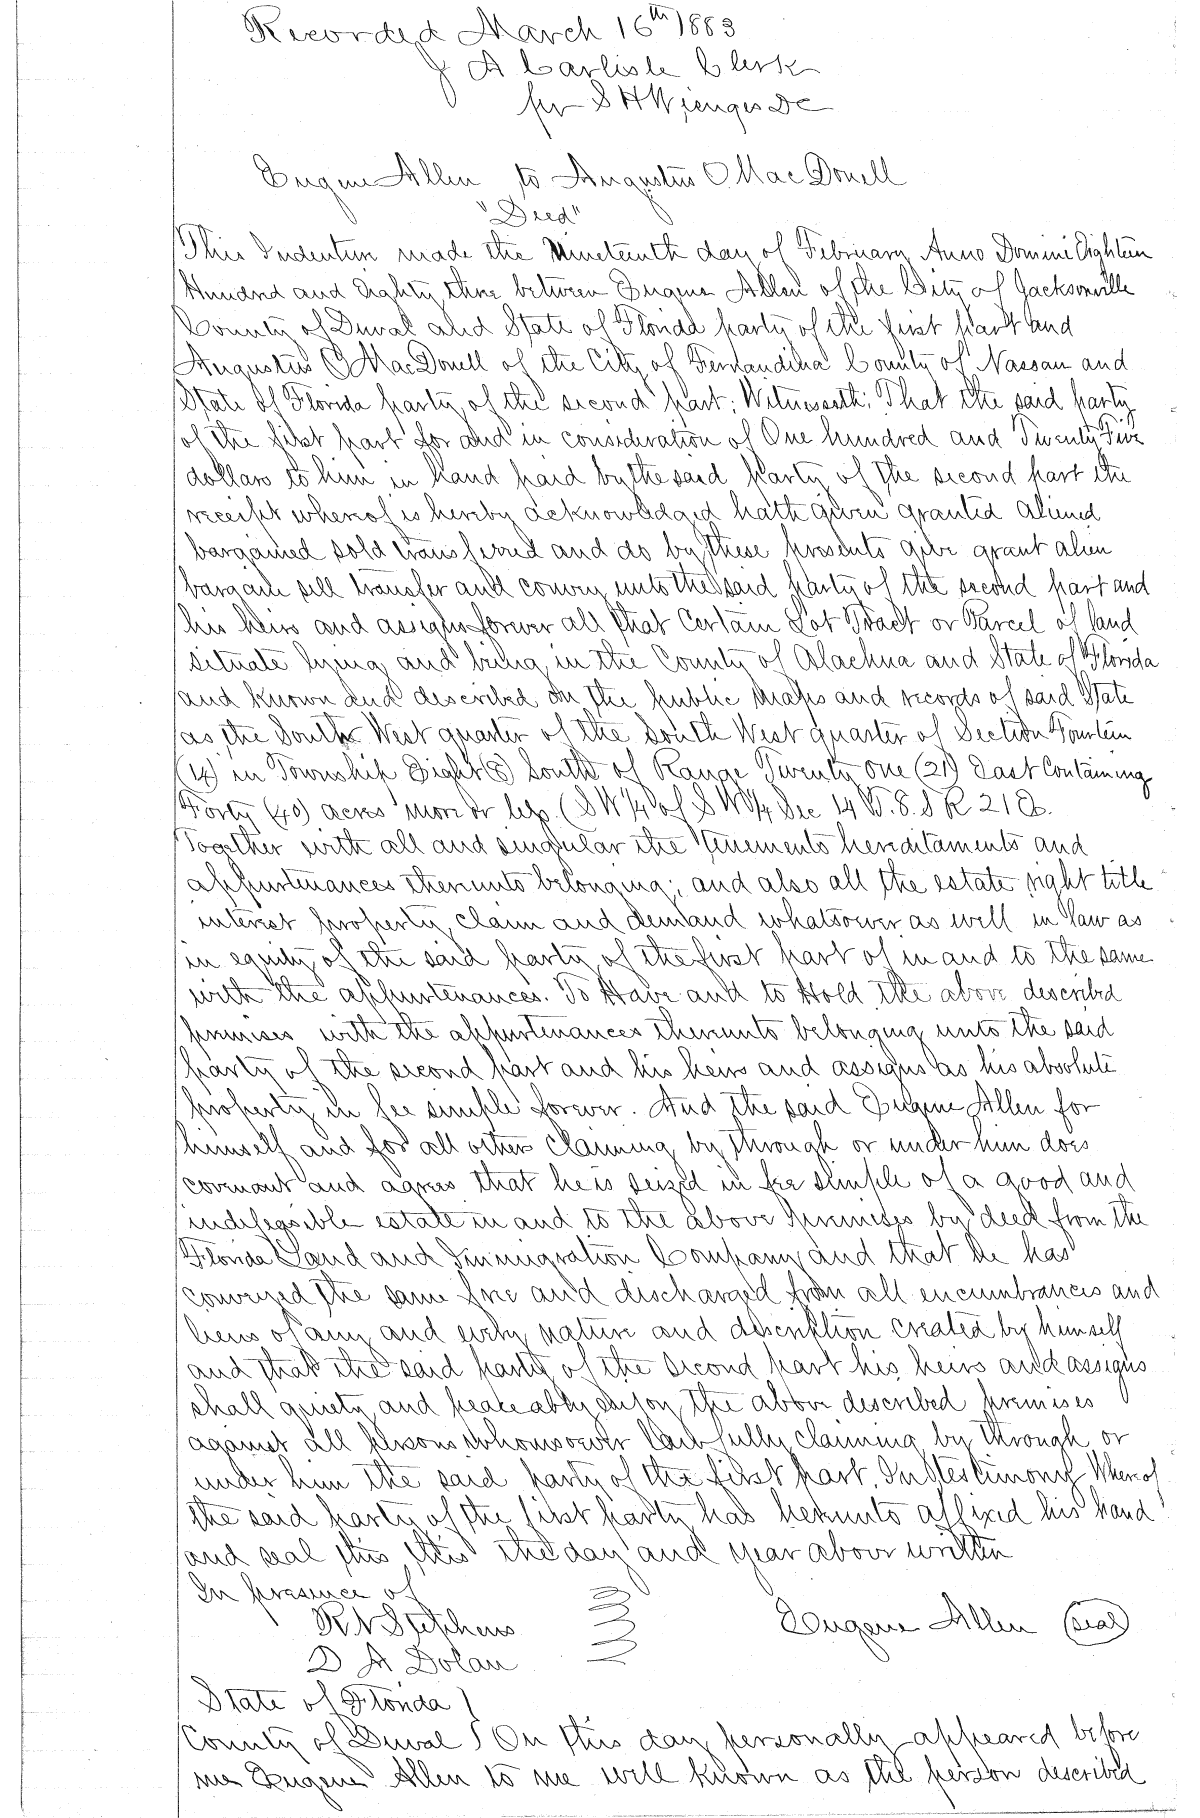 Recorded March 16th 1883
J A Carlisle Clerk
per S H Wienges DC
Eugene Allen to Augustus O MacDonell
"Deed"
This Indenture made the Nineteenth day of February Anno Domini Eighteen
Hundred and Eighty three between Eugene Allen of the City of Jacksonville
County of Duval and State of Florida party of the first part and
Augustus O MacDonell of the City of Fernandina County of Nassau and
State of Florida party of the second part; Witnesseth; That the said party
of the first part for and in consideration of One hundred and Twenty Five
dollars to him in hand paid by the said party of the second part the
receipt whereof is hereby acknowledged hath given granted aliened
bargained sold transferred and do by these presents give grant alien
bargain sell transfer and convey unto the said party of the second part and
his heirs and assigns forever all that Certain Lot Tract or Parcel of land
situate lying and being in the County of Alachua and State of Florida
and known and described on the public maps and records of said State
as the South West quarter of the South West quarter of Section Fourteen
(14) in Township Eight (8) South of Range Twenty one (21) East Containing
Forty (40) acres more or less. (SW 1/4 of SW 1/4 Sec 14 T. 8. S R 21 E.
Together with all and singular the tenements hereditaments and
appurtenances thereunto belonging; and also all the estate right title
interest property claim and demand whatsoever as well in law as
in equity of the said party of the first part of in and to the same
with the appurtenances. To Have and to Hold the above described
premises with the appurtenances thereunto belonging unto the said
party of the second part and his heirs and assigns as his absolute
property in fee simple forever. And the said Eugene Allen for
himself and for all others claiming by through or under him does
covenant and agrees that he is seized in fee simple of a good and
indefeasible estate in and to the above premises by deed from the
Florida Land and Immigration Company and that he has
conveyed the same free and discharged from all encumbrances and
liens of any and every nature and description created by himself
and that the said party of the second part his heirs and assigns
shall quiety and peaceably enjoy the above described premises
against all persons whomsoever lawfully claiming by through or
under him the said party of the first part. In Testimony Whereof
the said party of the first party has hereunto affixed his hand
and seal this this the day and year above written
In presence of
R N Stephens
Eugene Allen (seal)
D A Dolan
State of Florida )
County of Duval ) On this day personally appeared before
me Eugene Allen to me well known as the person described